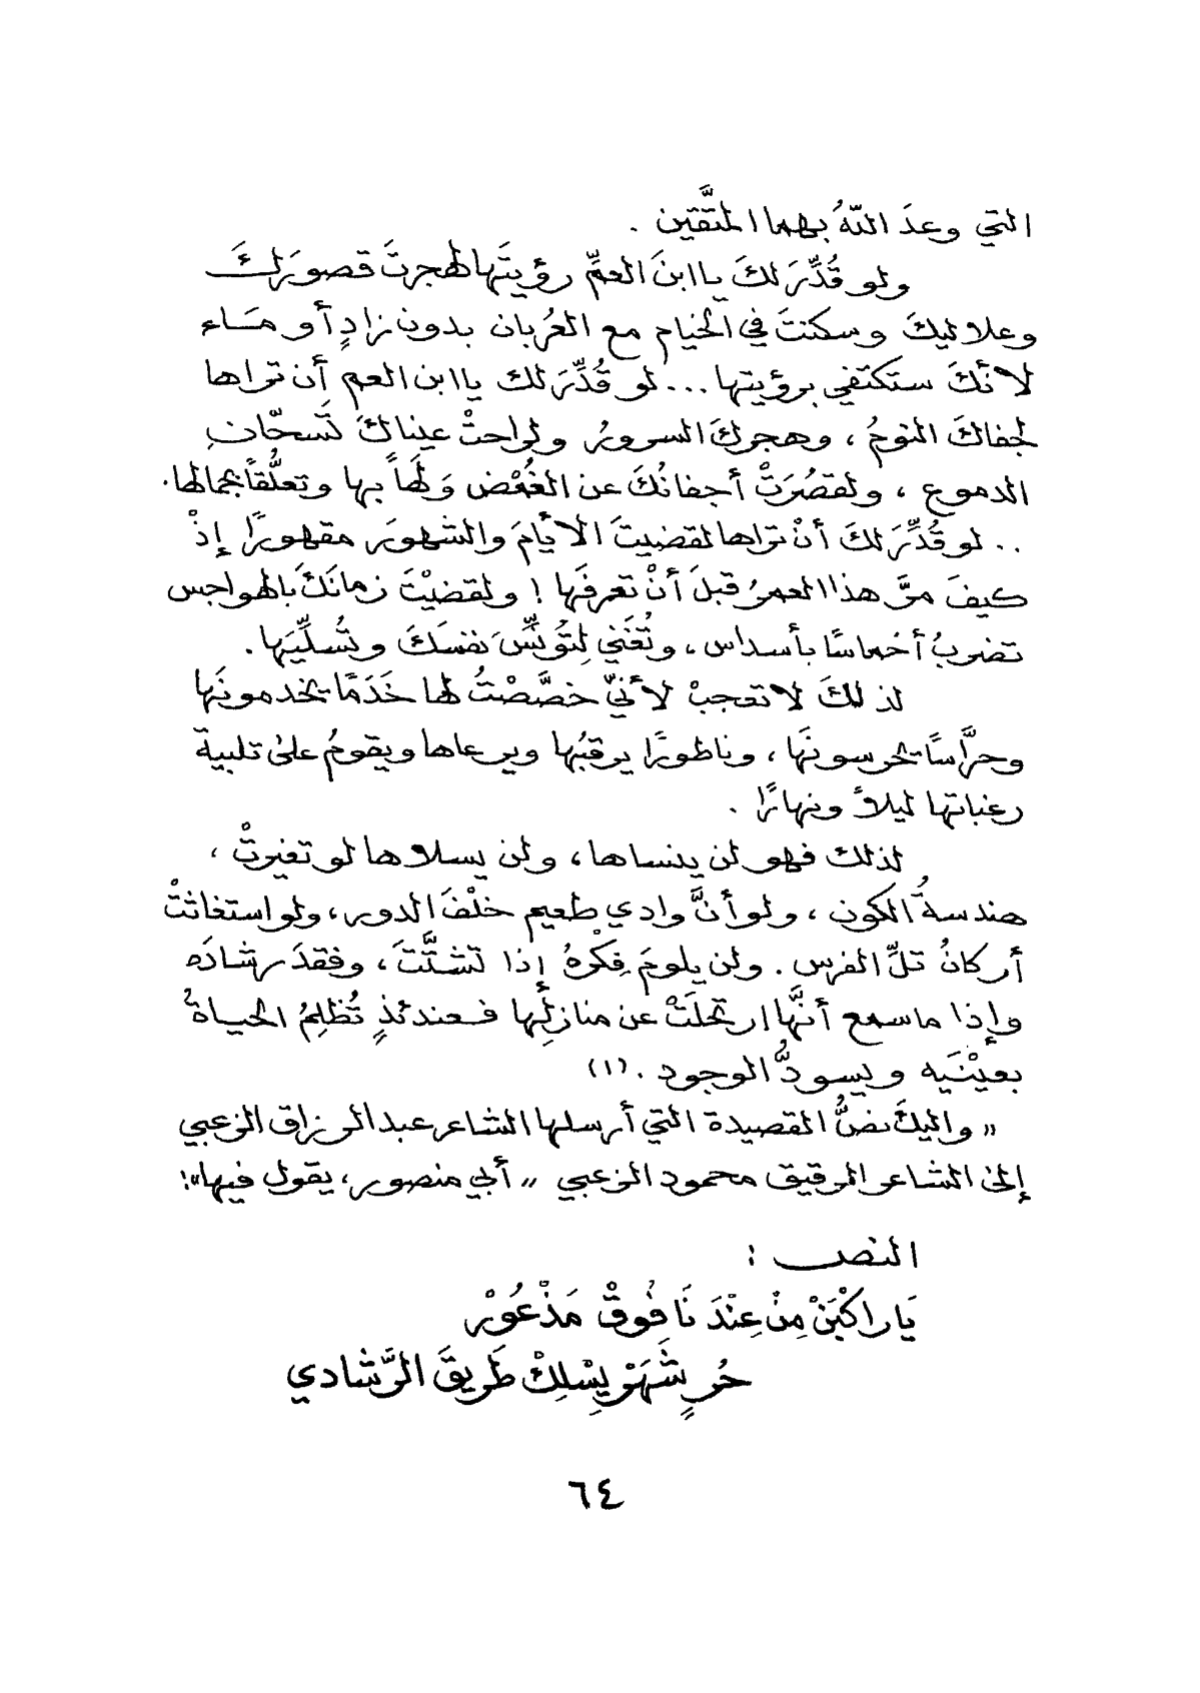 التي وعدَ اللّهُ بهما المتَّقين .
ولو قُدِّرَ لكَ يا ابنَ العمِّ رؤيتَها لهجرتَ قصورَكَ
وعلاليكَ وسكنتَ في الخيام مع العُربان بدون زادٍ أو مَساء
لأنكَ ستكتفي برؤيتها ... لو قُدِّرَ لك يا ابن العم أن تراها
لجفاكَ النومُ ، وهجركَ السرورُ ولراحتْ عيناكَ تَسحّانِ
الدموع ، ولقصُرَتْ أجفانُكَ عن الغُمْض وَلَهاً بها وتعلُّقاً بجمالها.
.. لو قُدِّرَ لكَ أنْ تراها لقضيتَ الأيامَ والشهورَ مقهورًا إذْ
كيفَ مرَّ هذا العمرُ قبلَ أنْ تعرفَها ! ولقضيْتَ زمانَكَ بالهواجس
تضربُ أخماسًا بأسداس ، وتُغَني لِتُؤنِّسَ نفسَكَ وتُسلِّيَها .
لذلكَ لا تعجبْ لأنّي خصَّصْتُ لها خَدَمًا يخدمونَها
وحرَّاسًا يحرسونَها ، وناطورًا يرقبُها ويرعاها ويقومُ على تلبية
رغباتها ليلاً ونهارًا .
لذلك فهو لن ينساها ، ولن يسلاها لو تغيرتْ ،
هندسةُ الكون ، ولو أنَّ وادي طعيم خلْفَ الدور ، ولو استغاثتْ
أركانُ تلِّ الفرس . ولن يلومَ فِكْرهُ إذا تشتَّتَ ، وفقدَ رشادَه
وإذا ما سمع أنَّها ارتحلَتْ عن منازلِها فعندئذٍ تُظلِمُ الحياةُ
بعيْنَيه ويسودُّ الوجود .(١)
" واليكَ نصُّ القصيدة التي أرسلها الشاعر عبد الرزاق الزعبي
إلى الشاعر الرقيق محمود الزعبي " أبي منصور ، يقول فيها":
النص :
يَا راكْبَنْ مِنْ عِنْدَ نَافُوقْ مَذْعُورْ
حُرٍ شَهَرْ يِسْلِكْ طَريقَ الرَّشادي
٦٤